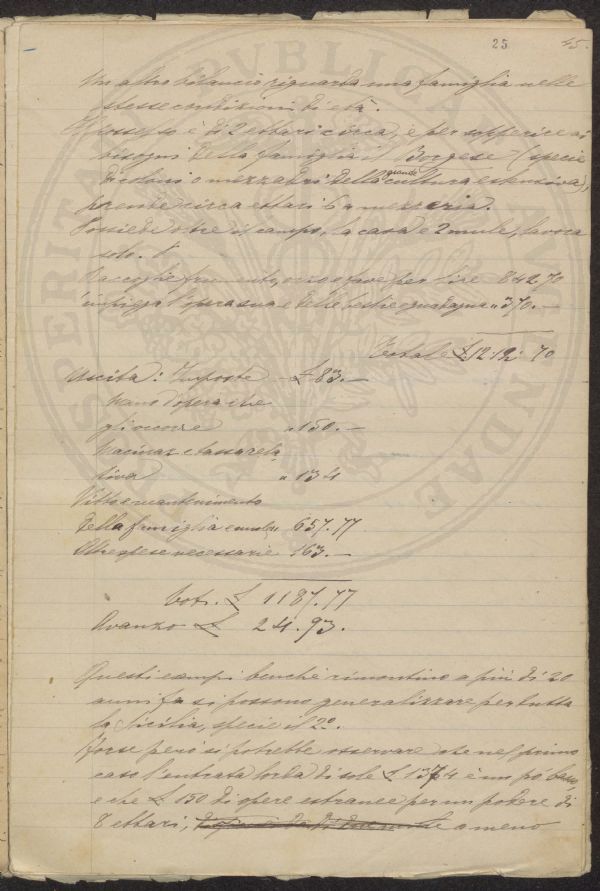 25 45.
Un altro bilancio riguarda una famiglia nelle
stesse condizioni di età.
Il possesso è di 2 ettari circa, e per sopperire ai
bisogni della famiglia il Borgese (specie
di coloni o mezzadri della grande cultura estensiva),
prende circa ettari 6 a mezzeria.
Possiede oltre il campo, la casa e 2 mule, lavora
solo.
Raccoglie frumento, orzo e fave per lire 842,70
impiega l'opera sua e delle bestie e guadagna " 370.—
Totale £ 1212. 70
Uscita: Imposte £ 83.—
Mano d'opera che
gli occorre " 150.—
Macinaz. e tassa rela
tiva " 134
Vitto e mantenimento
della famiglia e mule " 657.77
Altre spese necessarie 163.—
Tot. £ 1187.77
Avanzo £ 24.93.
Questi esempi benché rimontino a più di 20
anni fa si possono generalizzare per tutta
la Sicilia, specie il 2º.
Forse però si potrebbe osservare che nel primo
caso l'entrata lorda di sole £ 1374 è un po' bassa,
e che £ 150 di opere estranee per un podere di
8 ettari, a meno